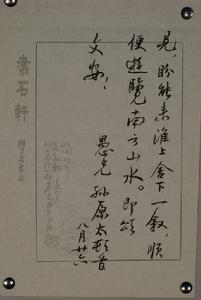 见，盼能来淮上舍下一叙，顺
便遊覽南方山水。即颂
文安！
愚兄 孙原太 顿首
八月廿六
素石軒